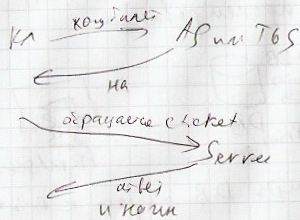 Кл хочу билет AS или TGS
на
обращается с ticket
Server
ответ
и логин